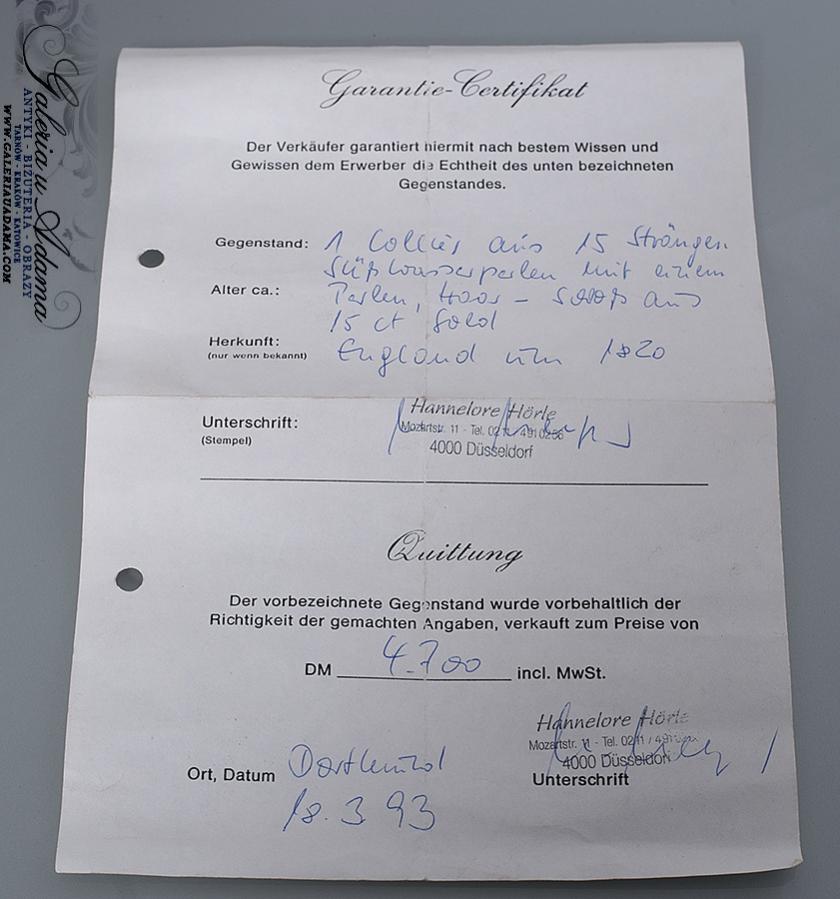 Galeria u Adama
ANTYKI - BIŻUTERIA - OBRAZY
TARNÓW - KRAKÓW - KATOWICE
WWW.GALERIAUADAMA.COM
Garantie-Certifikat
Der Verkäufer garantiert hiermit nach bestem Wissen und
Gewissen dem Erwerber die Echtheit des unten bezeichneten
Gegenstandes.
Gegenstand: 1 Collier aus 15 Strängen
Süßwasserperlen mit einem
Alter ca.: Perlen, Haar - aus
15 ct Gold
Herkunft: England um 1820
(nur wenn bekannt)
Unterschrift:
(Stempel)
Hannelore Hörle
Mozartstr. 11 - Tel. 02
4000 Düsseldorf
Quittung
Der vorbezeichnete Gegenstand wurde vorbehaltlich der
Richtigkeit der gemachten Angaben, verkauft zum Preise von
DM 4.700 incl. MwSt.
Hannelore Hörle
Mozartstr. 11 - Tel. 0211 /
4000 Düsseldorf
Ort, Datum Dortmund
18.3.93
Unterschrift